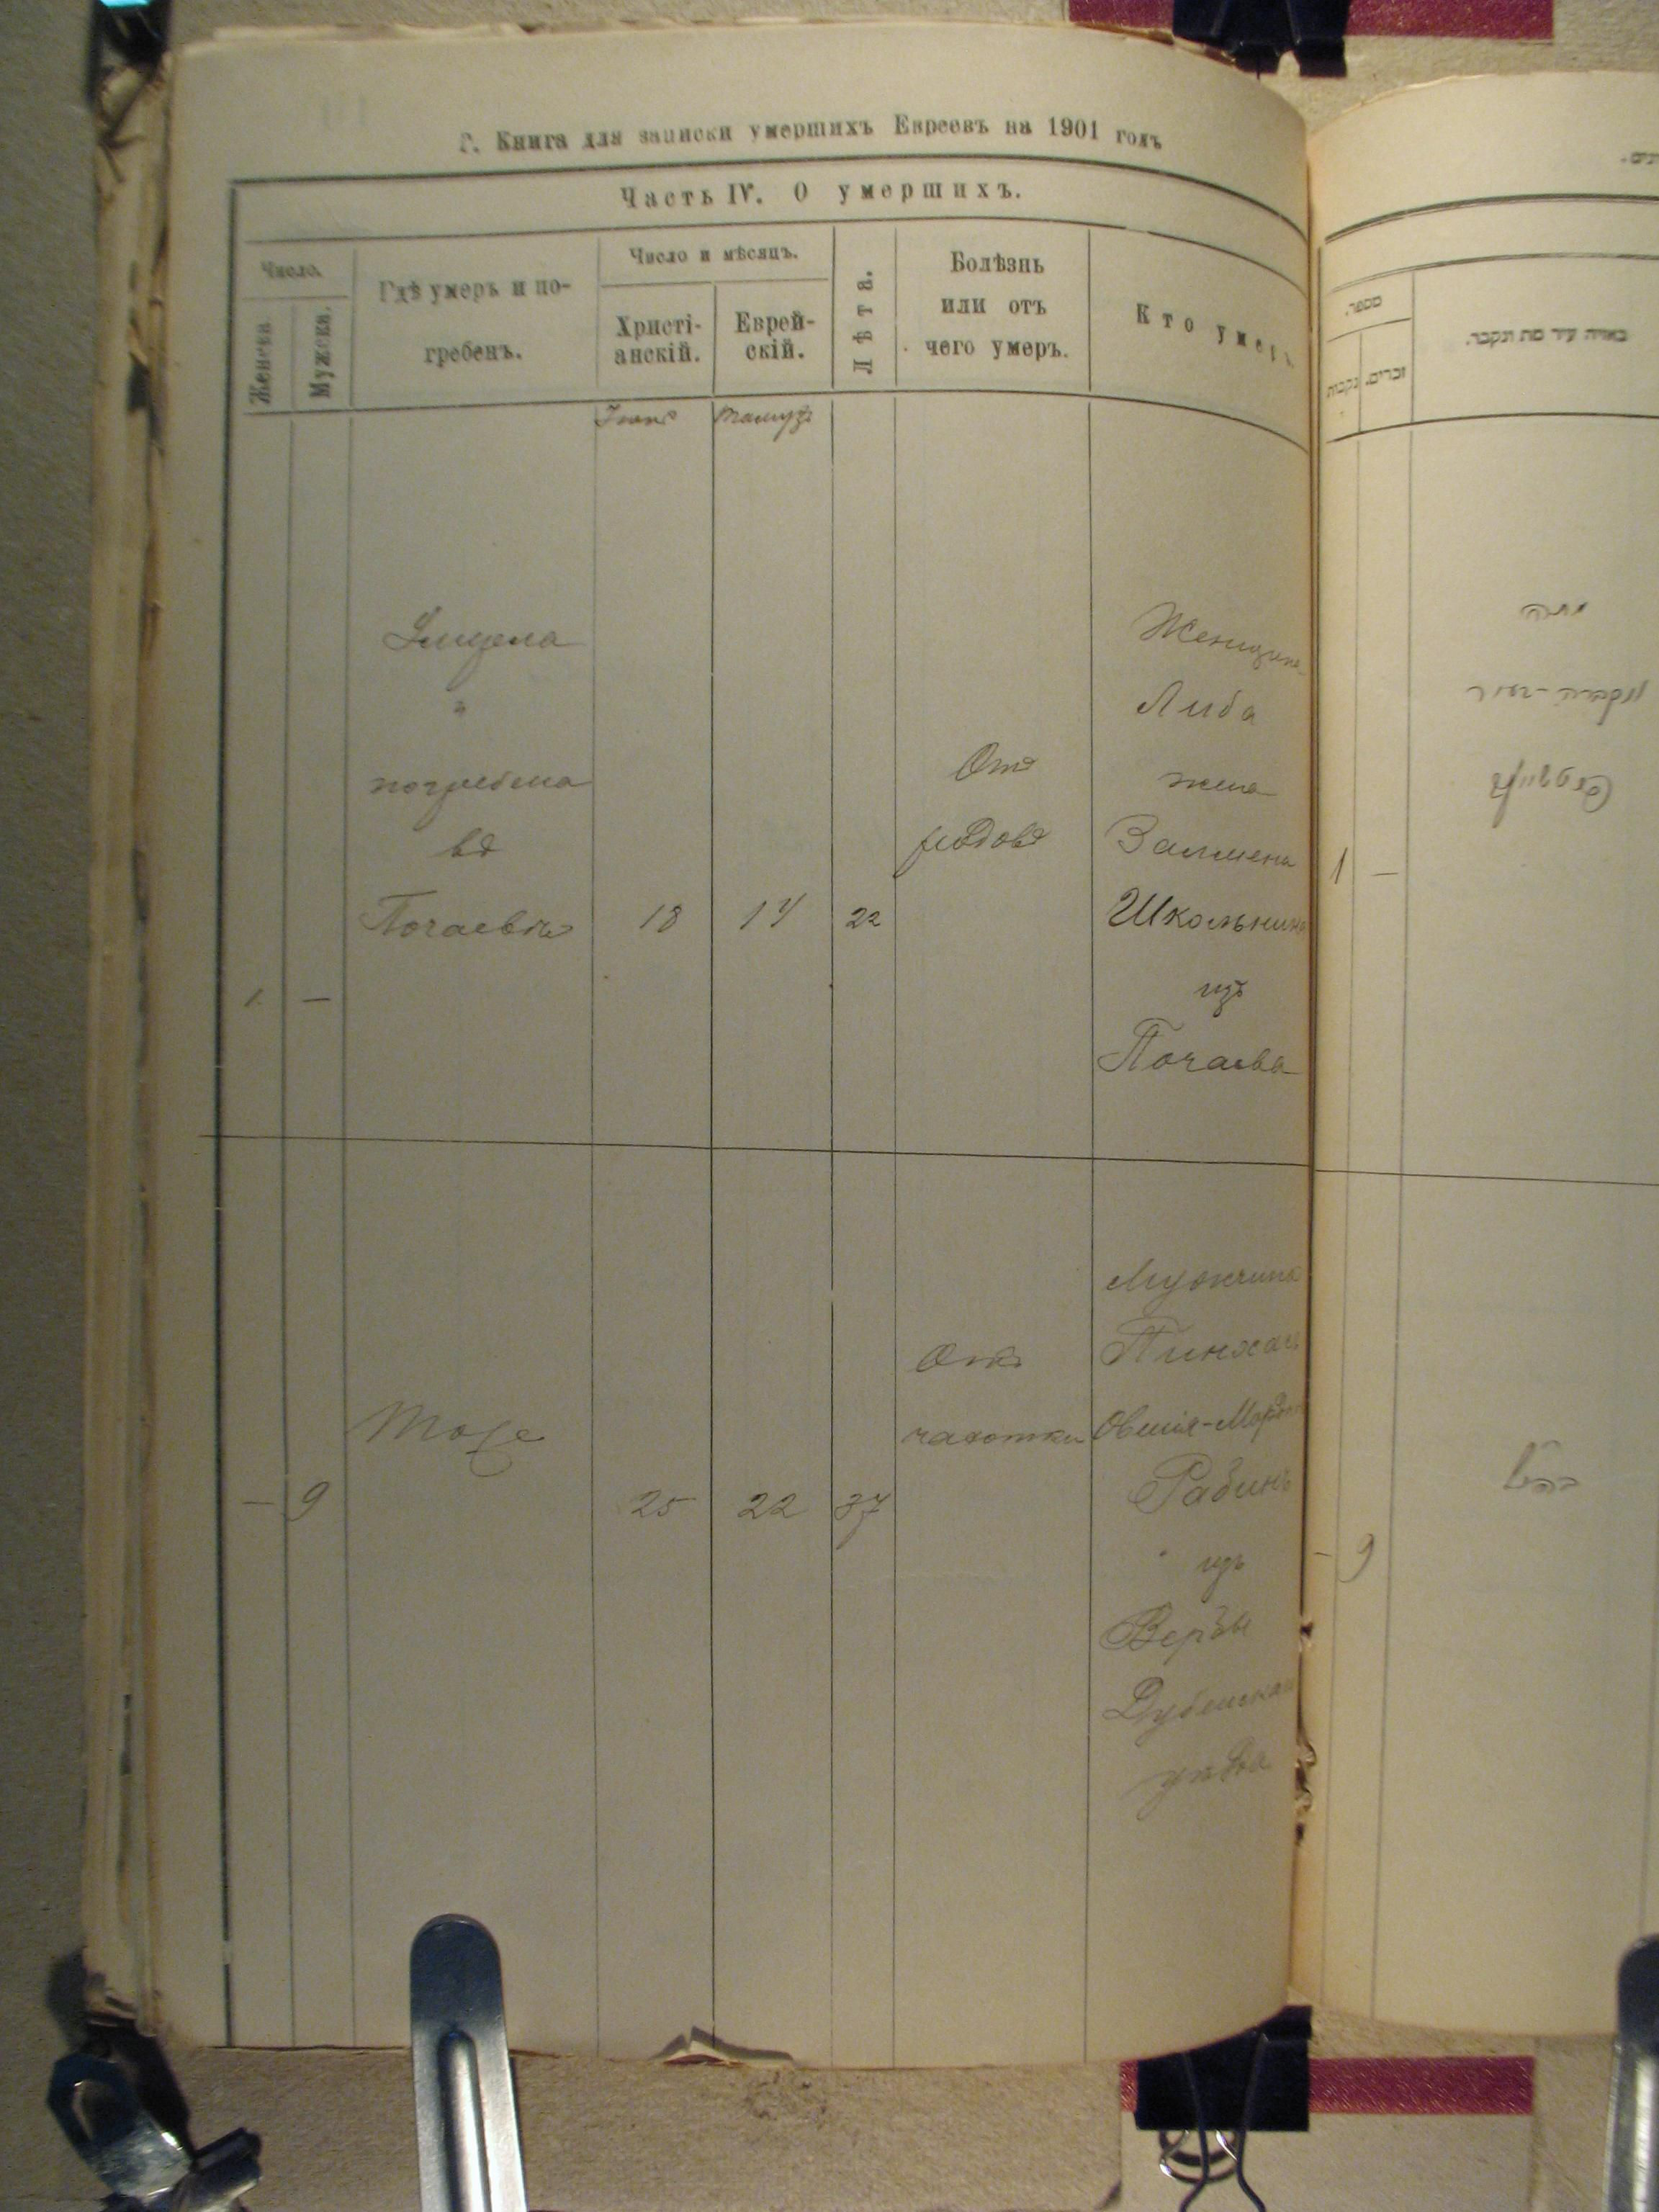 Г. Книга для записки умершихъ Евреевъ на 1901 годъ
Часть IV. О умершихъ.
Число.
Женска.
Мужска.
Гдѣ умеръ и по-
гребенъ.
Число и мѣсяцъ.
Христі-
анскій.
Еврей-
скій.
Лѣта.
Болѣзнь
или отъ
чего умеръ.
Кто умеръ
Тамузъ
и
погребена
въ
Почаевѣ
1 —
18 14 22
Отъ
родовъ
Женщина
Либа
жена
Залмена
изъ
Почаева
— 9
Тоже
25 22 37
Отъ
чахотки
Мужчина
Пинхасъ
Рабинъ
изъ
Вербы
Дубенскаго
уѣзда
מספר.
זכרים.
נקבות
באיזה עיר מת ונקבר.
מתה
1 —
— 9